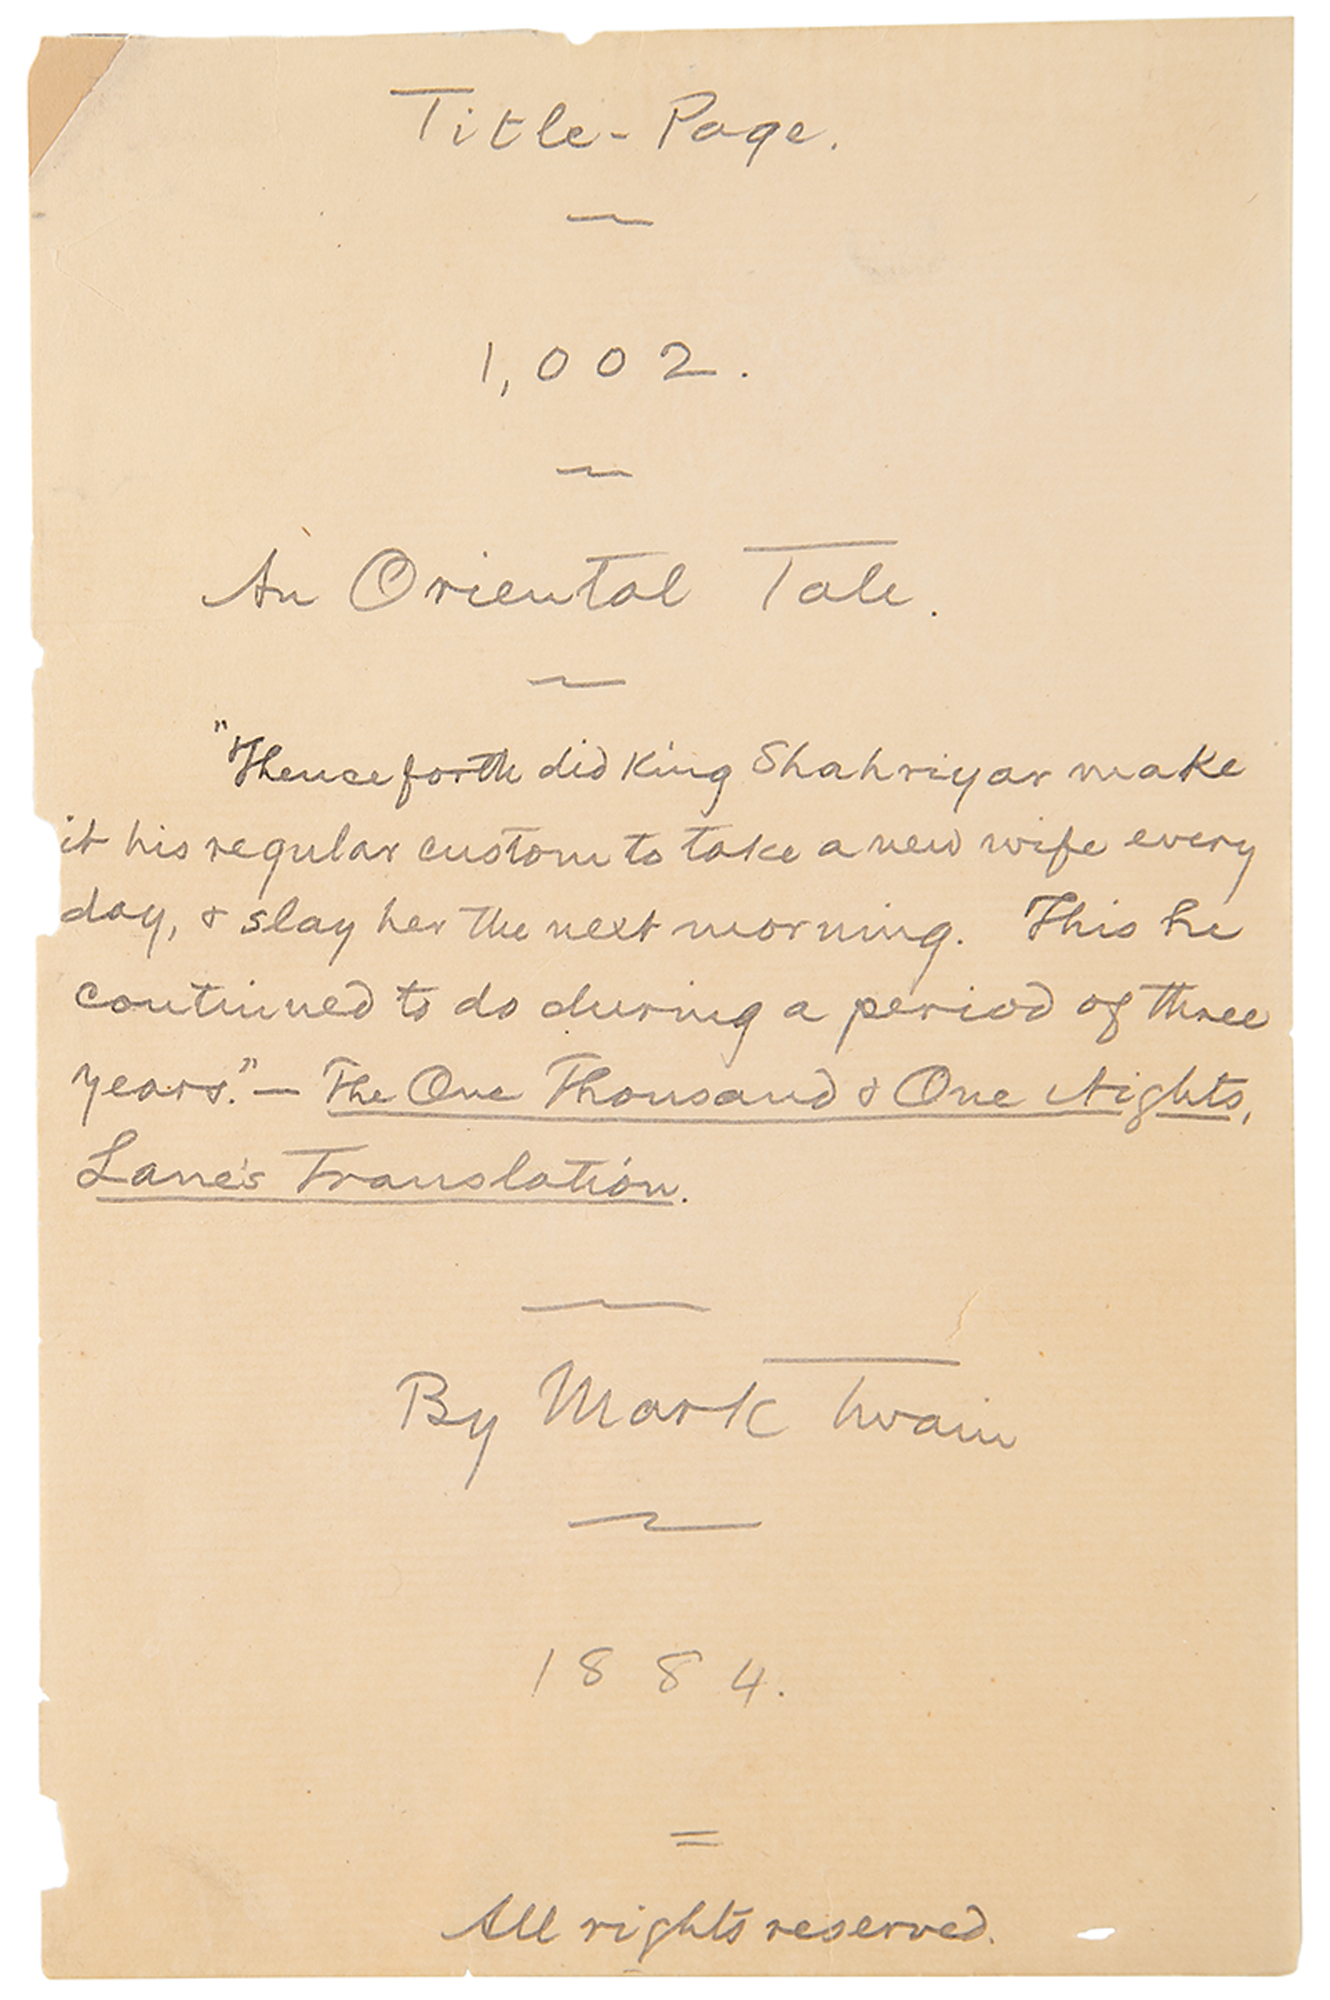 Title-Page.
1,002.
An Oriental Tale.
"Thenceforth did King Shahriyar make
it his regular custom to take a new wife every
day, & slay her the next morning. This he
continued to do during a period of three
years."— The One Thousand & One Nights,
Lane's Translation.
By Mark Twain
1884.
All rights reserved.